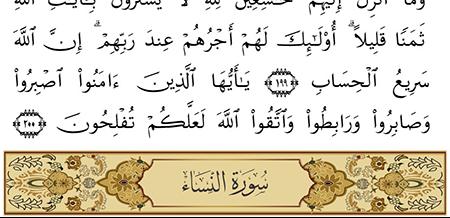 وَمَآ أُنزِلَ إِلَيْهِمْ خَٰشِعِينَ لِلَّهِ لَا يَشْتَرُونَ بِـَٔايَٰتِ ٱللَّهِ
ثَمَنًا قَلِيلًا ۗ أُو۟لَٰٓئِكَ لَهُمْ أَجْرُهُمْ عِندَ رَبِّهِمْ ۗ إِنَّ ٱللَّهَ
سَرِيعُ ٱلْحِسَابِ ١٩٩ يَٰٓأَيُّهَا ٱلَّذِينَ ءَامَنُوا۟ ٱصْبِرُوا۟
وَصَابِرُوا۟ وَرَابِطُوا۟ وَٱتَّقُوا۟ ٱللَّهَ لَعَلَّكُمْ تُفْلِحُونَ ٢٠٠
سُورَةُ النِّسَاءِ